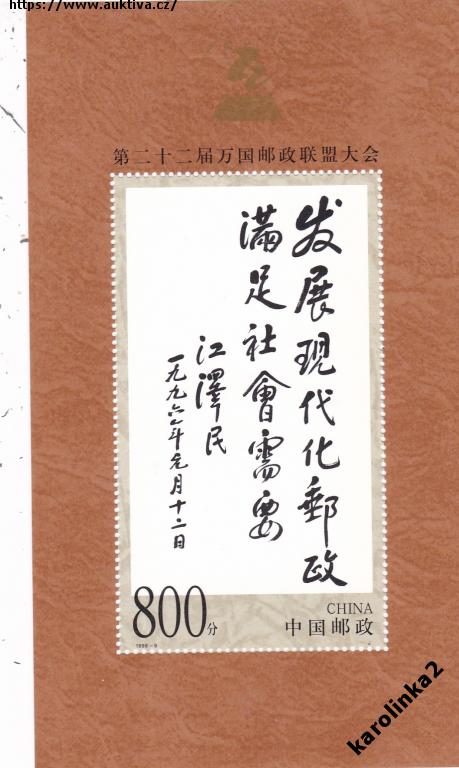 https://www.auktiva.cz/
第二十二届万国邮政联盟大会
发展现代化郵政
滿足社會需要
江澤民
一九九六年元月十二日
800分
1999-9
CHINA
中国邮政
karolinka2